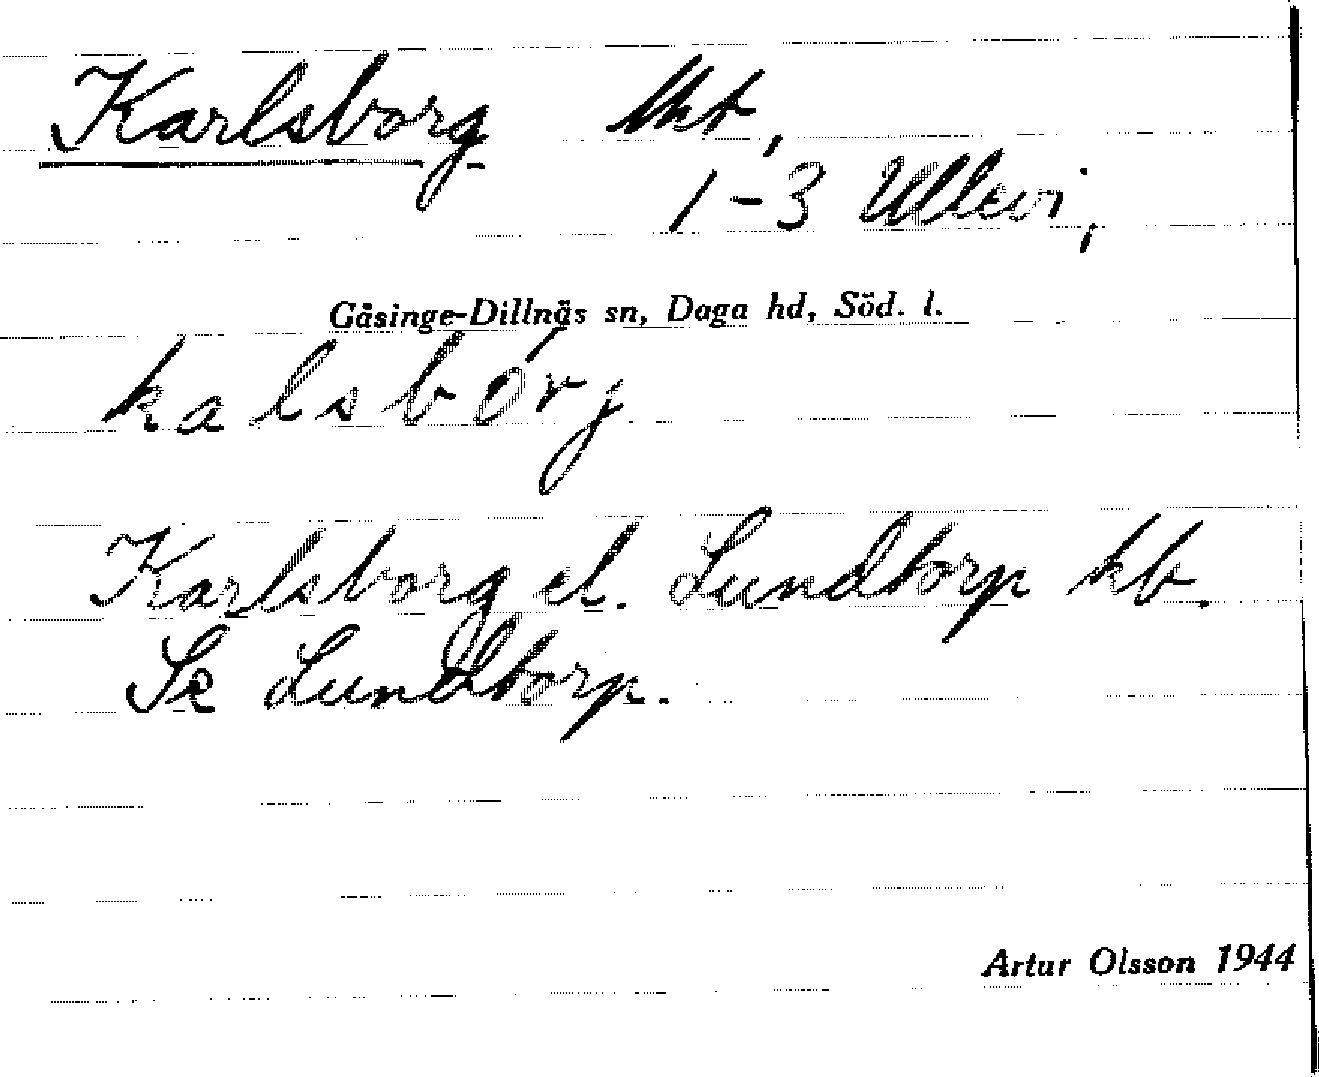 Karlsborg lht,
1-3 Ullevi,
Gåsinge-Dillnäs sn, Daga hd, Söd. l.
kalsbórj
Karlsborg el. Lundtorp kb.
Se Lundtorp.
Artur Olsson 1944